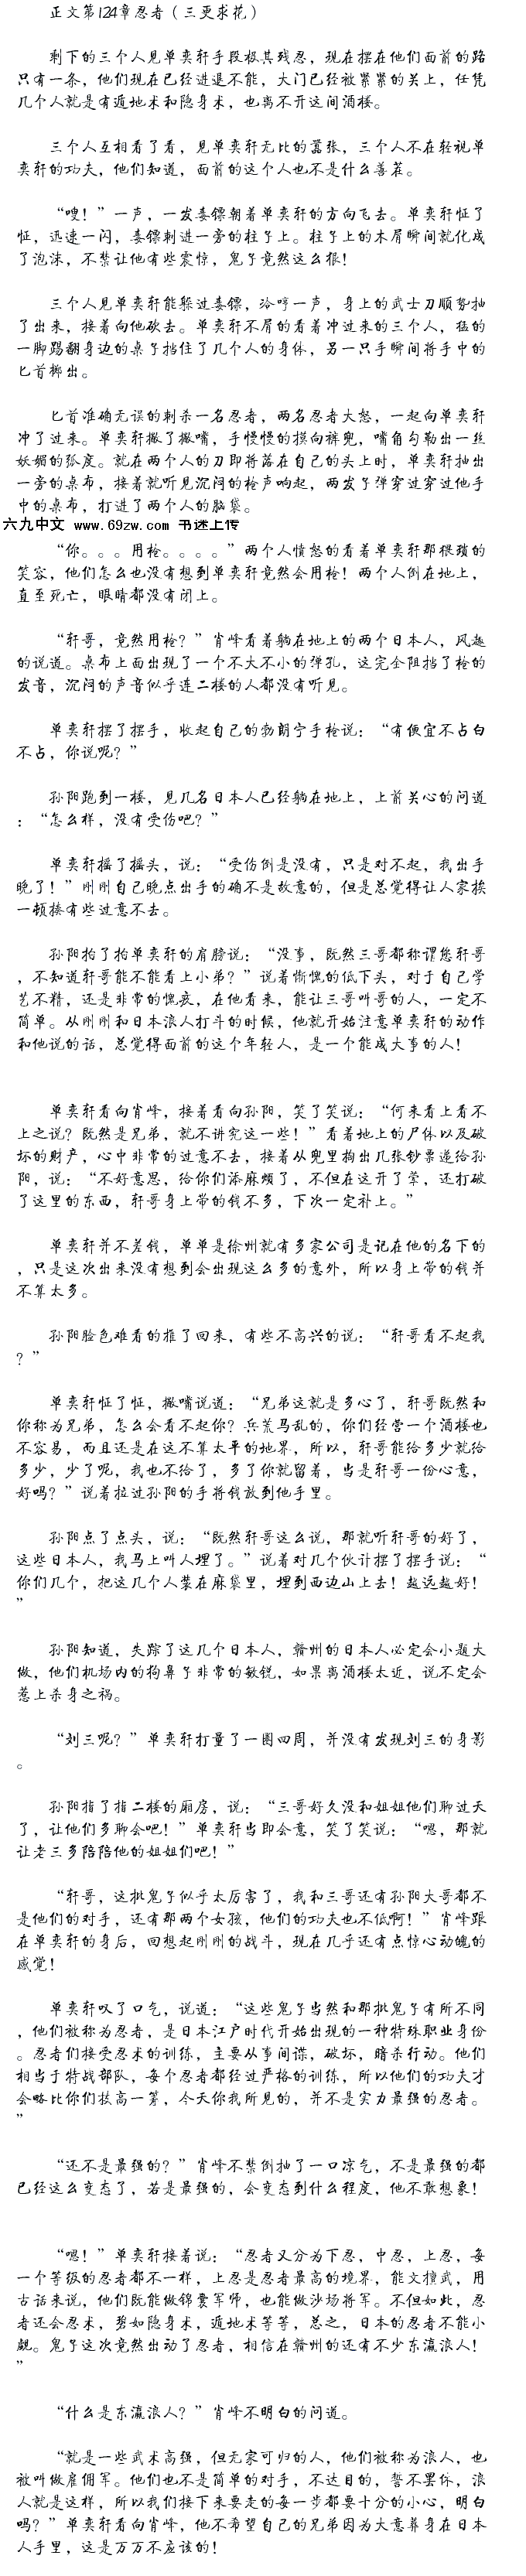 正文第124章忍者（三更求花）
剩下的三个人见单奕轩手段极其残忍，现在摆在他们面前的路
只有一条，他们现在已经进退不能，大门已经被紧紧的关上，任凭
几个人就是有遁地术和隐身术，也离不开这间酒楼。
三个人互相看了看，见单奕轩无比的嚣张，三个人不在轻视单
奕轩的功夫，他们知道，面前的这个人也不是什么善茬。
“嗖！”一声，一发毒镖朝着单奕轩的方向飞去。单奕轩怔了
怔，迅速一闪，毒镖刺进一旁的柱子上。柱子上的木屑瞬间就化成
了泡沫，不禁让他有些震惊，鬼子竟然这么狠！
三个人见单奕轩能躲过毒镖，冷哼一声，身上的武士刀顺势抽
了出来，接着向他砍去。单奕轩不屑的看着冲过来的三个人，猛的
一脚踢翻身边的桌子挡住了几个人的身体，另一只手瞬间将手中的
匕首掷出。
匕首准确无误的刺杀一名忍者，两名忍者大怒，一起向单奕轩
冲了过来。单奕轩撇了撇嘴，手慢慢的摸向裤兜，嘴角勾勒出一丝
妖媚的弧度。就在两个人的刀即将落在自己的头上时，单奕轩抽出
一旁的桌布，接着就听见沉闷的枪声响起，两发子弹穿过穿过他手
中的桌布，打进了两个人的脑袋。
六九中文 www.69zw.com 书迷上传
“你。。。用枪。。。。”两个人愤怒的看着单奕轩那猥琐的
笑容，他们怎么也没有想到单奕轩竟然会用枪！两个人倒在地上，
直至死亡，眼睛都没有闭上。
“轩哥，竟然用枪？”肖峰看着躺在地上的两个日本人，风趣
的说道。桌布上面出现了一个不大不小的弹孔，这完全阻挡了枪的
发音，沉闷的声音似乎连二楼的人都没有听见。
单奕轩摆了摆手，收起自己的勃朗宁手枪说：“有便宜不占白
不占，你说呢？”
孙阳跑到一楼，见几名日本人已经躺在地上，上前关心的问道
：“怎么样，没有受伤吧？”
单奕轩摇了摇头，说：“受伤倒是没有，只是对不起，我出手
晚了！”刚刚自己晚点出手的确不是故意的，但是总觉得让人家挨
一顿揍有些过意不去。
孙阳拍了拍单奕轩的肩膀说：“没事，既然三哥都称谓您轩哥
，不知道轩哥能不能看上小弟？”说着惭愧的低下头，对于自己学
艺不精，还是非常的愧疚，在他看来，能让三哥叫哥的人，一定不
简单。从刚刚和日本浪人打斗的时候，他就开始注意单奕轩的动作
和他说的话，总觉得面前的这个年轻人，是一个能成大事的人！
单奕轩看向肖峰，接着看向孙阳，笑了笑说：“何来看上看不
上之说？既然是兄弟，就不讲究这一些！”看着地上的尸体以及破
坏的财产，心中非常的过意不去，接着从兜里掏出几张钞票递给孙
阳，说：“不好意思，给你们添麻烦了，不但在这开了荤，还打破
了这里的东西，轩哥身上带的钱不多，下次一定补上。”
单奕轩并不差钱，单单是徐州就有多家公司是记在他的名下的
，只是这次出来没有想到会出现这么多的意外，所以身上带的钱并
不算太多。
孙阳脸色难看的推了回来，有些不高兴的说：“轩哥看不起我
？”
单奕轩怔了怔，撇嘴说道：“兄弟这就是多心了，轩哥既然和
你称为兄弟，怎么会看不起你？兵荒马乱的，你们经营一个酒楼也
不容易，而且还是在这不算太平的地界，所以，轩哥能给多少就给
多少，少了呢，我也不给了，多了你就留着，当是轩哥一份心意，
好吗？”说着拉过孙阳的手将钱放到他手里。
孙阳点了点头，说：“既然轩哥这么说，那就听轩哥的好了，
这些日本人，我马上叫人埋了。”说着对几个伙计摆了摆手说：“
你们几个，把这几个人装在麻袋里，埋到西边山上去！越远越好！
”
孙阳知道，失踪了这几个日本人，赣州的日本人必定会小题大
做，他们机场内的狗鼻子非常的敏锐，如果离酒楼太近，说不定会
惹上杀身之祸。
“刘三呢？”单奕轩打量了一圈四周，并没有发现刘三的身影
。
孙阳指了指二楼的厢房，说：“三哥好久没和姐姐他们聊过天
了，让他们多聊会吧！”单奕轩当即会意，笑了笑说：“嗯，那就
让老三多陪陪他的姐姐们吧！”
“轩哥，这批鬼子似乎太厉害了，我和三哥还有孙阳大哥都不
是他们的对手，还有那两个女孩，他们的功夫也不低啊！”肖峰跟
在单奕轩的身后，回想起刚刚的战斗，现在几乎还有点惊心动魄的
感觉！
单奕轩叹了口气，说道：“这些鬼子当然和那批鬼子有所不同
，他们被称为忍者，是日本江户时代开始出现的一种特殊职业身份
。忍者们接受忍术的训练，主要从事间谍，破坏，暗杀行动。他们
相当于特战部队，每个忍者都经过严格的训练，所以他们的功夫才
会略比你们技高一筹，今天你我所见的，并不是实力最强的忍者。
”
“还不是最强的？”肖峰不禁倒抽了一口凉气，不是最强的都
已经这么变态了，若是最强的，会变态到什么程度，他不敢想象！
“嗯！”单奕轩接着说：“忍者又分为下忍，中忍，上忍，每
一个等级的忍者都不一样，上忍是忍者最高的境界，能文擅武，用
古话来说，他们既能做锦囊军师，也能做沙场将军。不但如此，忍
者还会忍术，譬如隐身术，遁地术等等，总之，日本的忍者不能小
觑。鬼子这次竟然出动了忍者，相信在赣州的还有不少东瀛浪人！
”
“什么是东瀛浪人？”肖峰不明白的问道。
“就是一些武术高强，但无家可归的人，他们被称为浪人，也
被叫做雇佣军。他们也不是简单的对手，不达目的，誓不罢休，浪
人就是这样，所以我们接下来要走的每一步都要十分的小心，明白
吗？”单奕轩看向肖峰，他不希望自己的兄弟因为大意葬身在日本
人手里，这是万万不应该的！